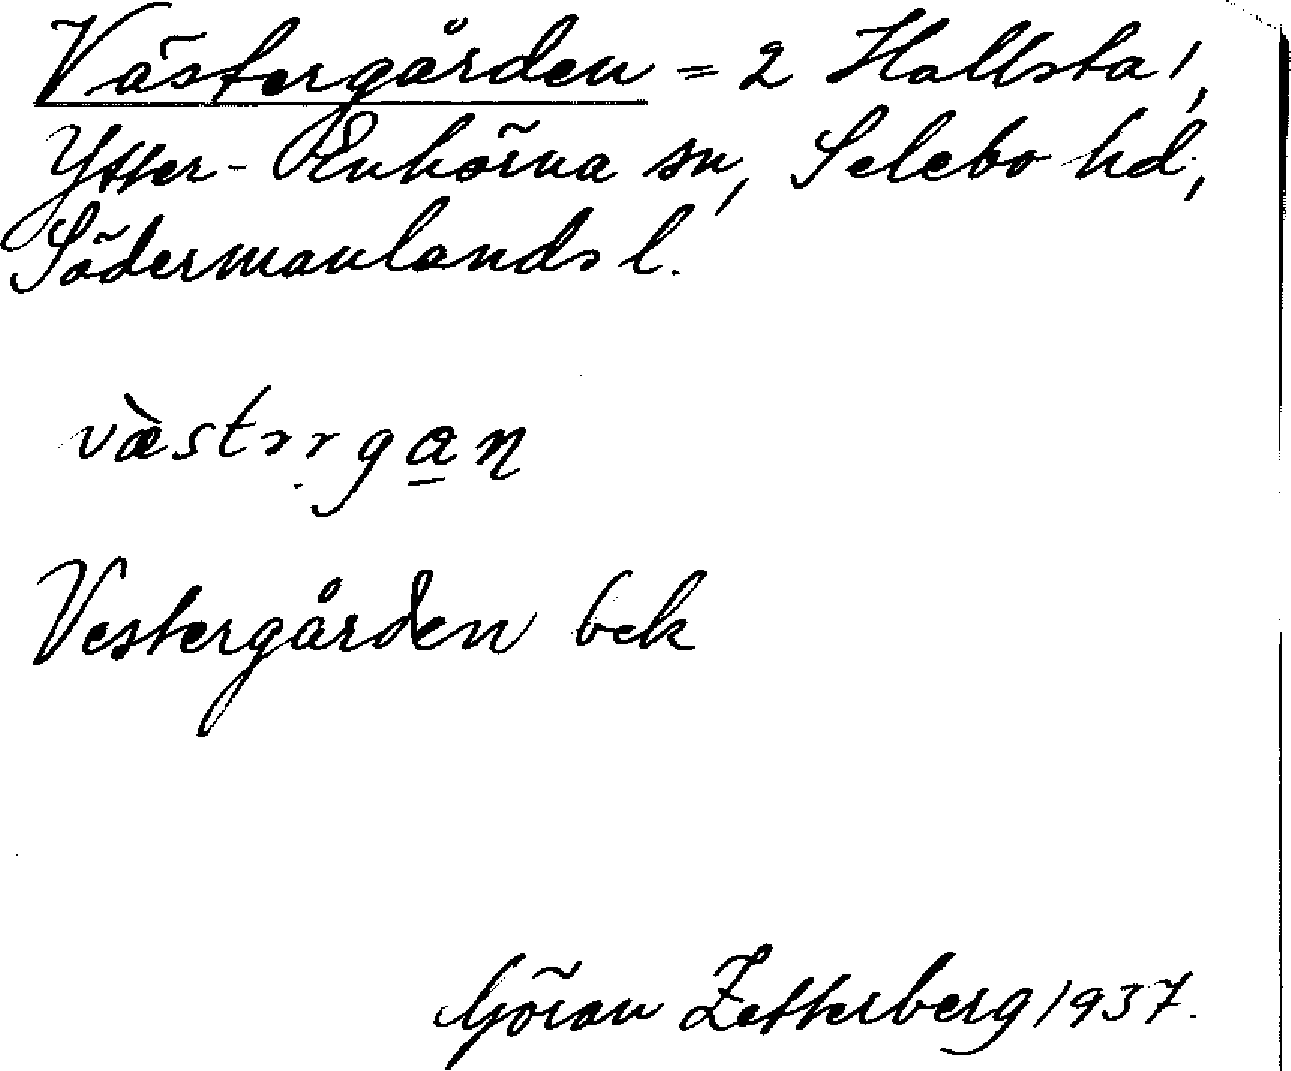 Västergården = 2 Hallsta 1,
Ytter-Enhörna sn, Selebo hd,
Södermanlands l.
Vestergården bek
Göran Zetterberg 1937.